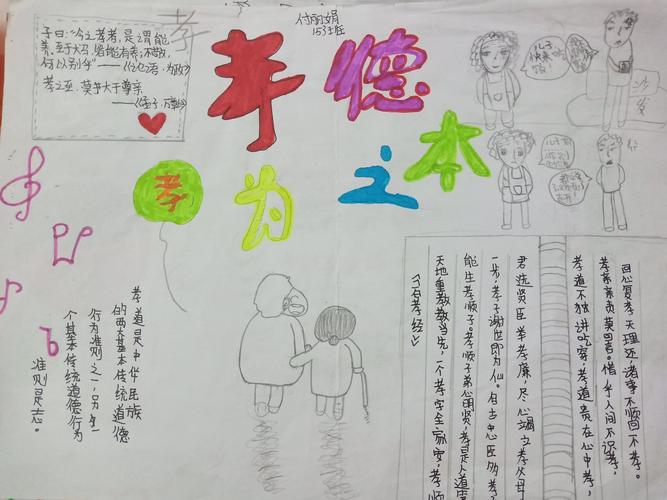 子曰:“今之孝者,是谓能
养.至于犬马,皆能有养;不敬,
何以别乎”——《论语·为政》
孝之至,莫大于尊亲
——《孟子·万章》
孝
付丽娟
153班
德
孝为之本
儿子快来吃饭
沙发
孝道是中华民族
的两大基本传统道德
行为准则之一,另一
个基本传统道德行为
准则是忠。
回心复孝天理还,诸事不顺因不孝。
孝亲亲责莫回言。惜乎人间不识孝,
孝道不独讲吃穿,孝道贵在心中孝
君选贤臣举孝廉,尽心竭力孝父母
一步,孝子谢世即为仙。自古中臣多孝子
能生孝顺子。孝顺子弟必明贤,孝是人道第
天地重孝孝当先,一个孝字全家安,孝顺
《百孝经》